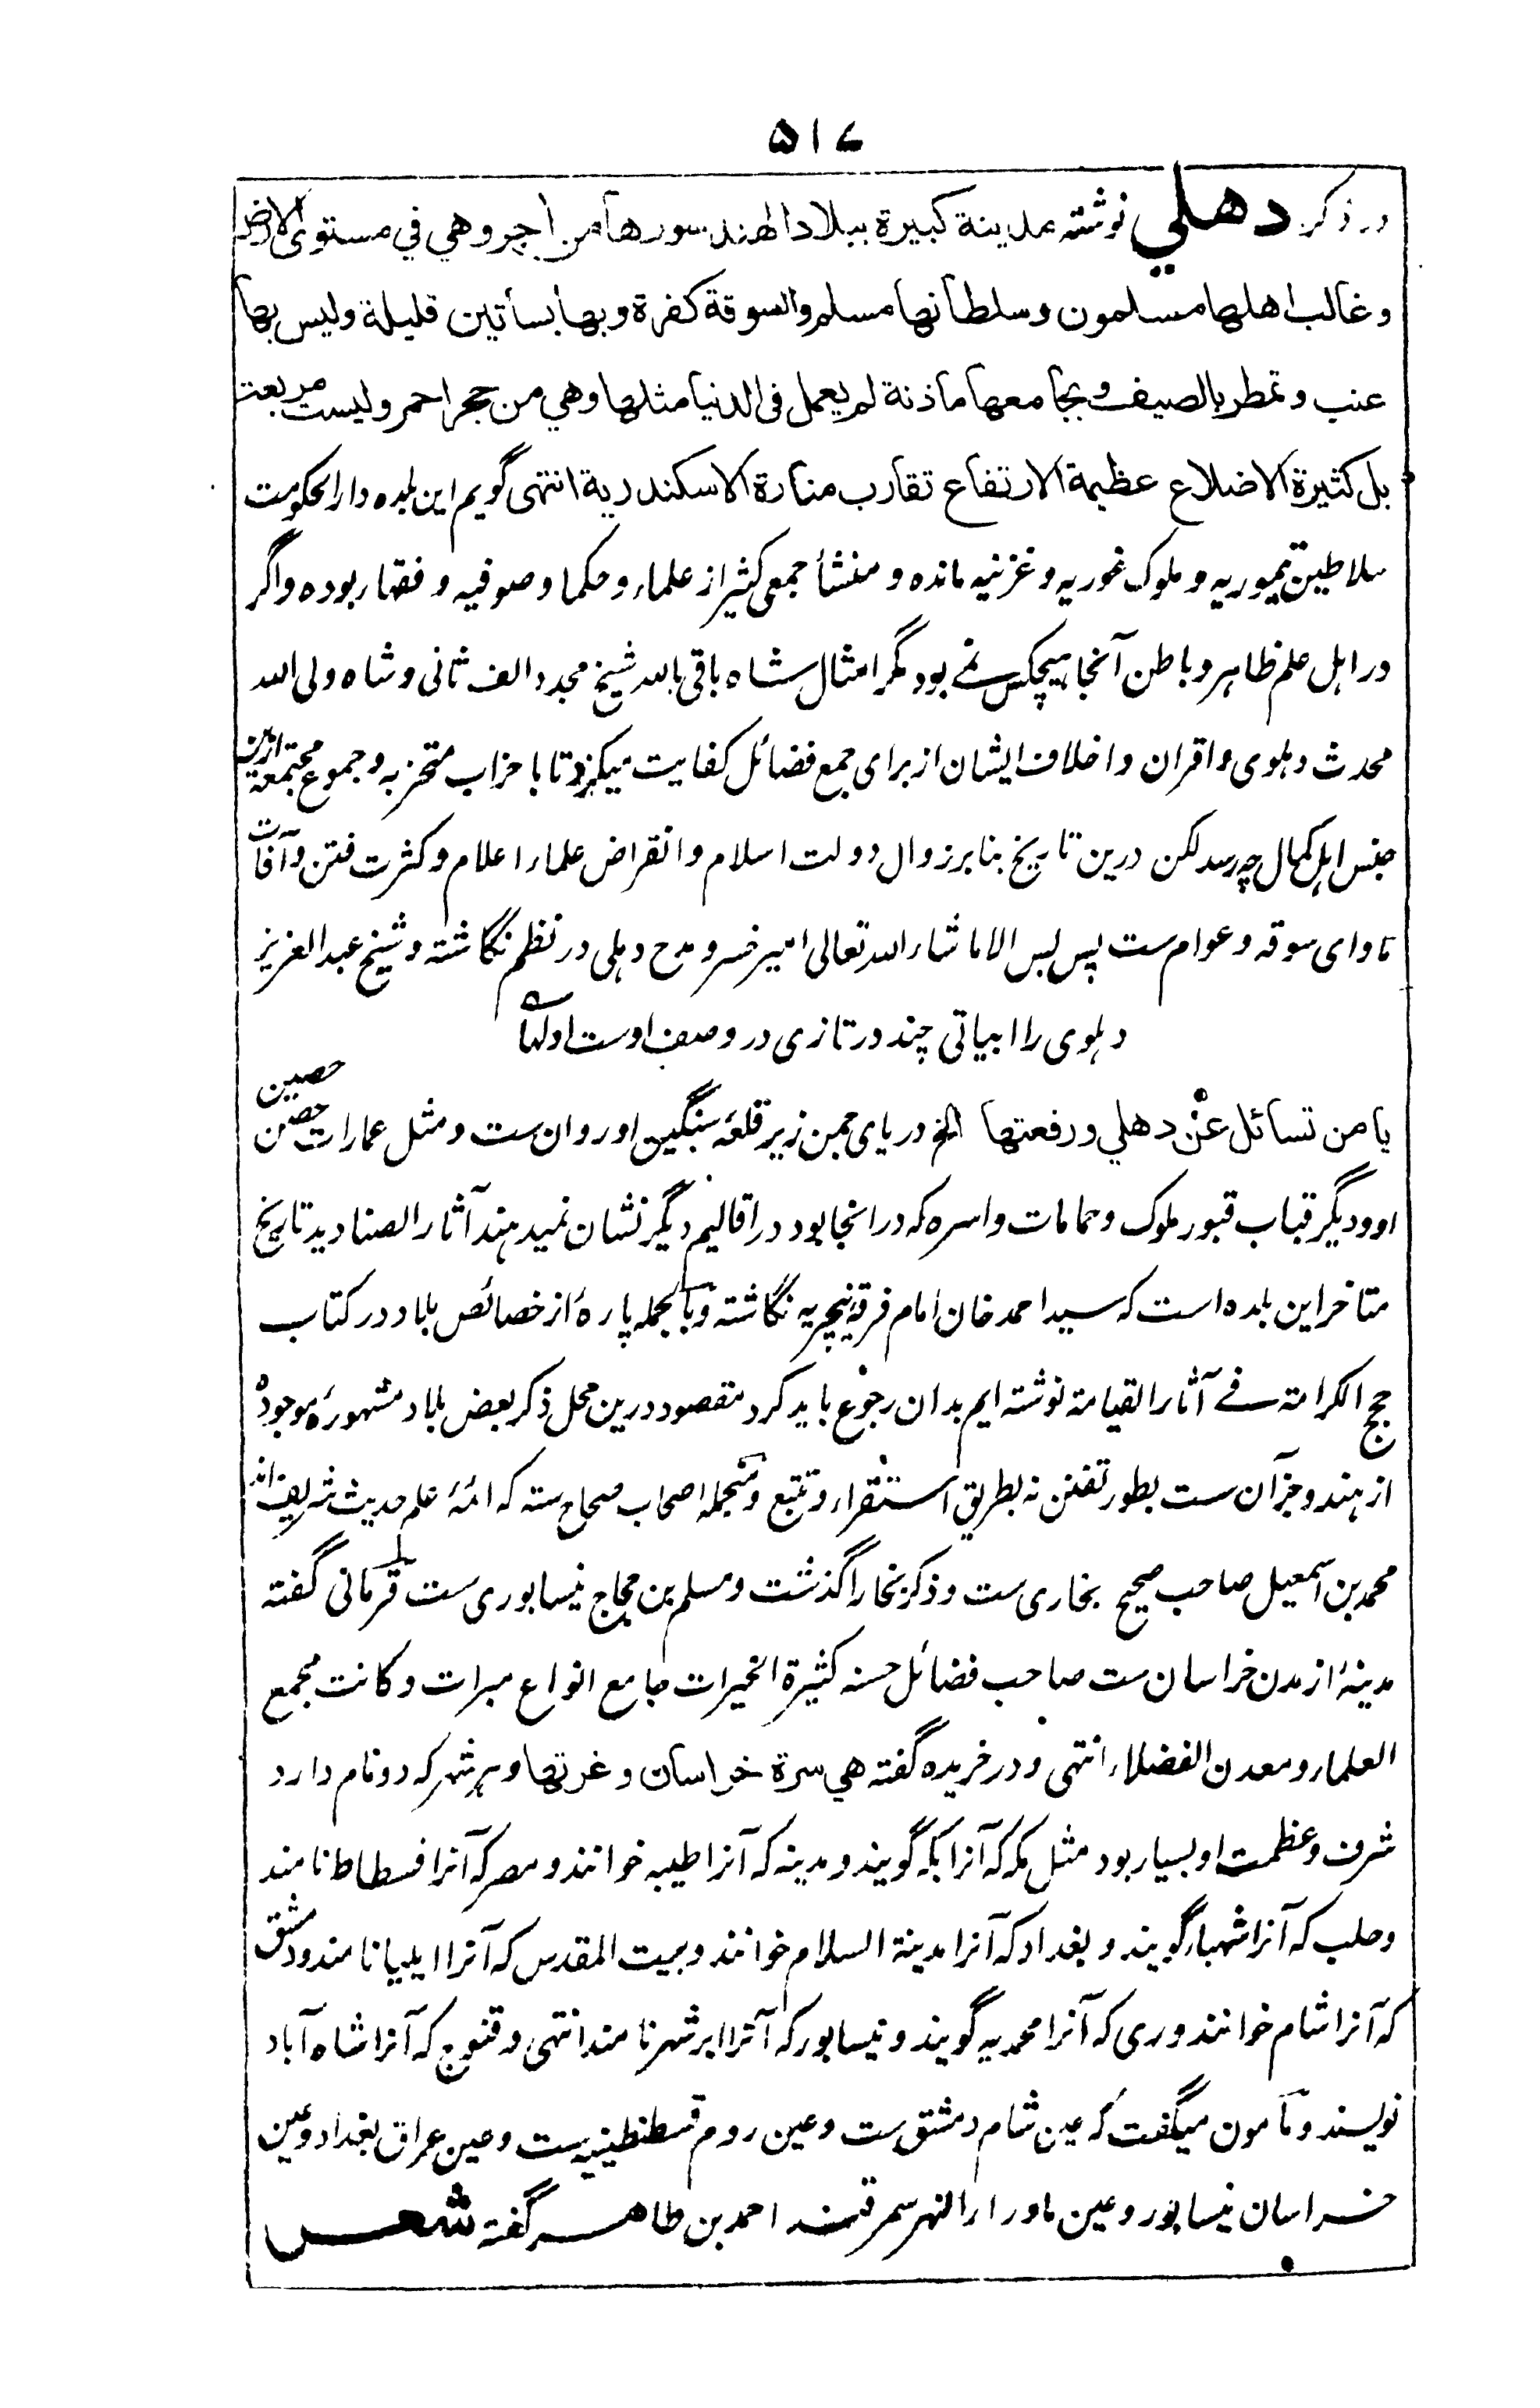 ۵۱۷
در ذکر دهلي نوشته مدينة كبيرة ببلاد الهند سورها من اجر وهي في مستوى الارض
وغالب اهلها مسلمون وسلطانها مسلم والسوقة كفرة وبها بساتين قليلة وليس بها
عنب وتمطر بالصيف وبجامعها ماذنة لم يعمل فى الدنيا مثلها وهي من حجر احمر وليست مربعة
بل كثيرة الاضلاع عظيمة الارتفاع تقارب منارة الاسكندرية انتهى گويم اين بلده دار الحكومت
سلاطين تيموريه و ملوک غوريه و غزنيه مانده و منشأ جمعى كثير از علماء و حكما و صوفيه و فقهاء بوده و اگر
در اهل علم ظاهر و باطن آنجا هيچکس نمے بود مگر امثال شاه باقى بالله شيخ مجدد الف ثانى و شاه ولى الله
محدث دهلوى و اقران و اخلاف ايشان از براى جمع فضائل كفايت ميكرد تا باحزاب متحزبه و جموع مجتمعه ازين
جنس اهل كمال چه رسد لكن درين تاريخ بنابر زوال دولت اسلام و انقراض علماء اعلام و كثرت فتن و آفات
ماواى سوقه و عوام ست پس ليس الا ما شاء الله تعالى امير خسرو مدح دهلى در نظم نگاشته و شيخ عبد العزيز
دهلوى را ابياتى چند در تازى در وصف اوست اولها
يا من تسائل عن دهلي ورفعتها الخ درياى جمن زير قلعهٔ سنگين او روان ست و مثل عمارات حصن حصين
او و ديگر قباب قبور ملوک و حمامات و اسره كه در آنجا بود در اقاليم ديگر نشان نميدهند آثار الصناديد تاريخ
متاخر اين بلده است كه سيد احمد خان امام فرقهٔ نيچريه نگاشته و بالجمله پارهٔ از خصائص بلاد در كتاب
حجج الكرامة فے آثار القيامة نوشته ايم بدان رجوع بايد كرد مقصود درين محل ذكر بعض بلاد مشهورهٔ موجوده
از هند و جز آن ست بطور تفنن نه بطريق استقراء و تتبع و منجمله اصحاب صحاح سته كه ائمهٔ علم حديث شريف اند
محمد بن اسمعيل صاحب صحيح بخارى ست و ذكر بخارا گذشت و مسلم بن حجاج نيسابورى ست قرمانى گفته
مدينهٔ از مدن خراسان ست صاحب فضائل حسنه كثيرة الخيرات جامع انواع مبرات و كانت مجمع
العلماء و معدن الفضلاء انتهى و در خريده گفته هي سرة خراسان وغرتها و هر شهر كه دو نام دارد
شرف و عظمت او بسيار بود مثل مكه كه آنرا بكه گويند و مدينه كه آنرا طيبه خوانند و مصر كه آنرا فسطاط نامند
و حلب كه آنرا شهباء گويند و بغداد كه آنرا مدينة السلام خوانند و بيت المقدس كه آنرا ايليا نامند و دمشق
كه آنرا شام خوانند و رى كه آنرا محمديه گويند و نيسابور كه آنرا ابرشهر نامند انتهى و قنوج كه آنرا شاه آباد
نويسند و مامون ميگفت كه عين شام دمشق ست و عين روم قسطنطينيه ست و عين عراق بغداد و عين
خراسان نيساپور و عين ماوراء النهر سمرقند احمد بن طاهر گفته شعر